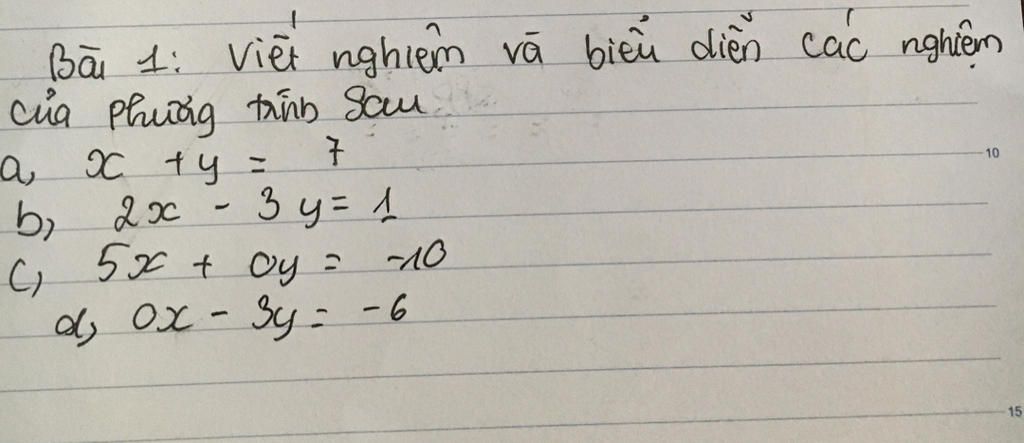 Bài 1: Viết nghiệm và biểu diễn các nghiệm
của phương trình sau
a, x + y = 7
10
b, 2x - 3y = 1
c, 5x + 0y = -10
d, 0x - 3y = -6
15